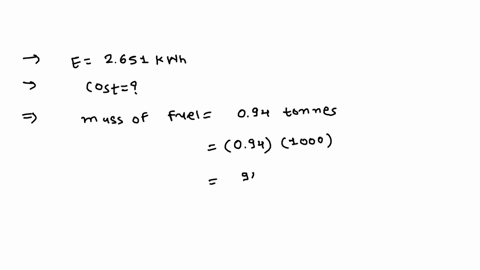 → E = 2.651 kWh
→ cost = ?
⇒ mass of fuel = 0.94 tonnes
= (0.94) (1000)
= 9